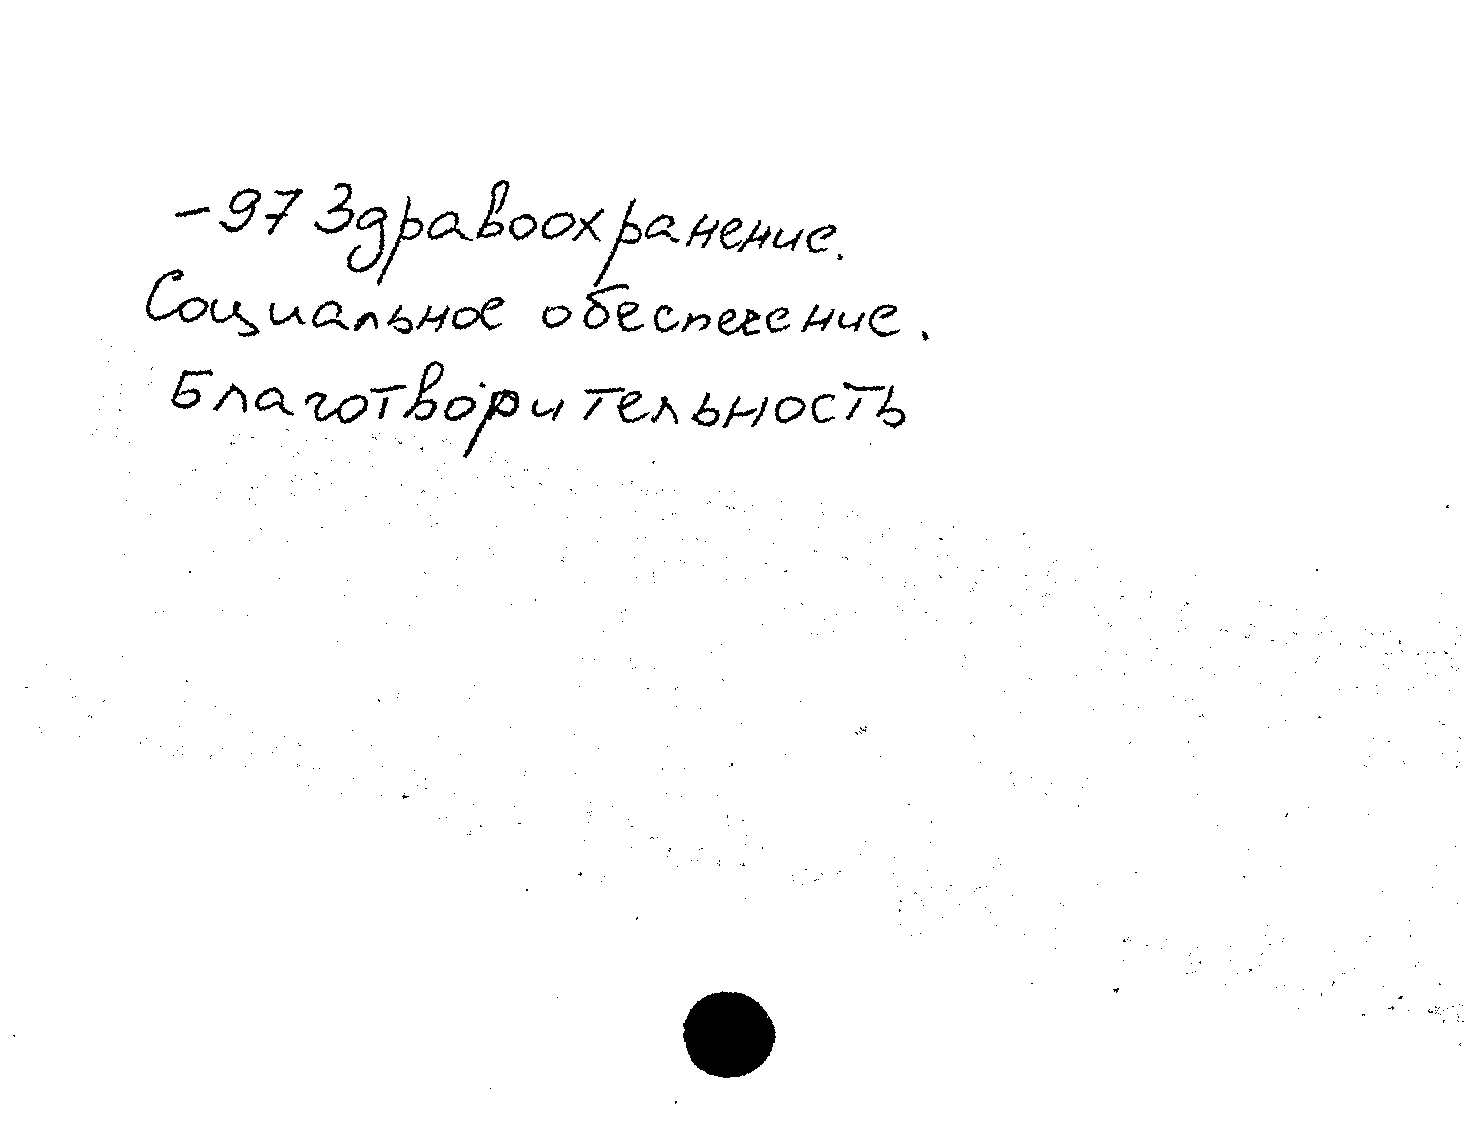 -97 Здравоохранение.
Социальное обеспечение.
Благотворительность